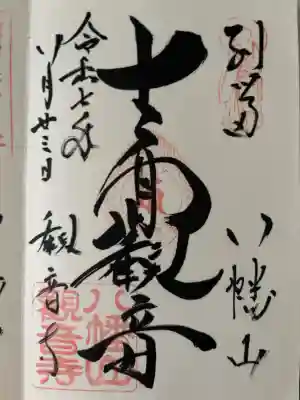 別當 八幡山
十一面觀音
令和七年
八月廿三日
觀音寺
八幡山
観音寺